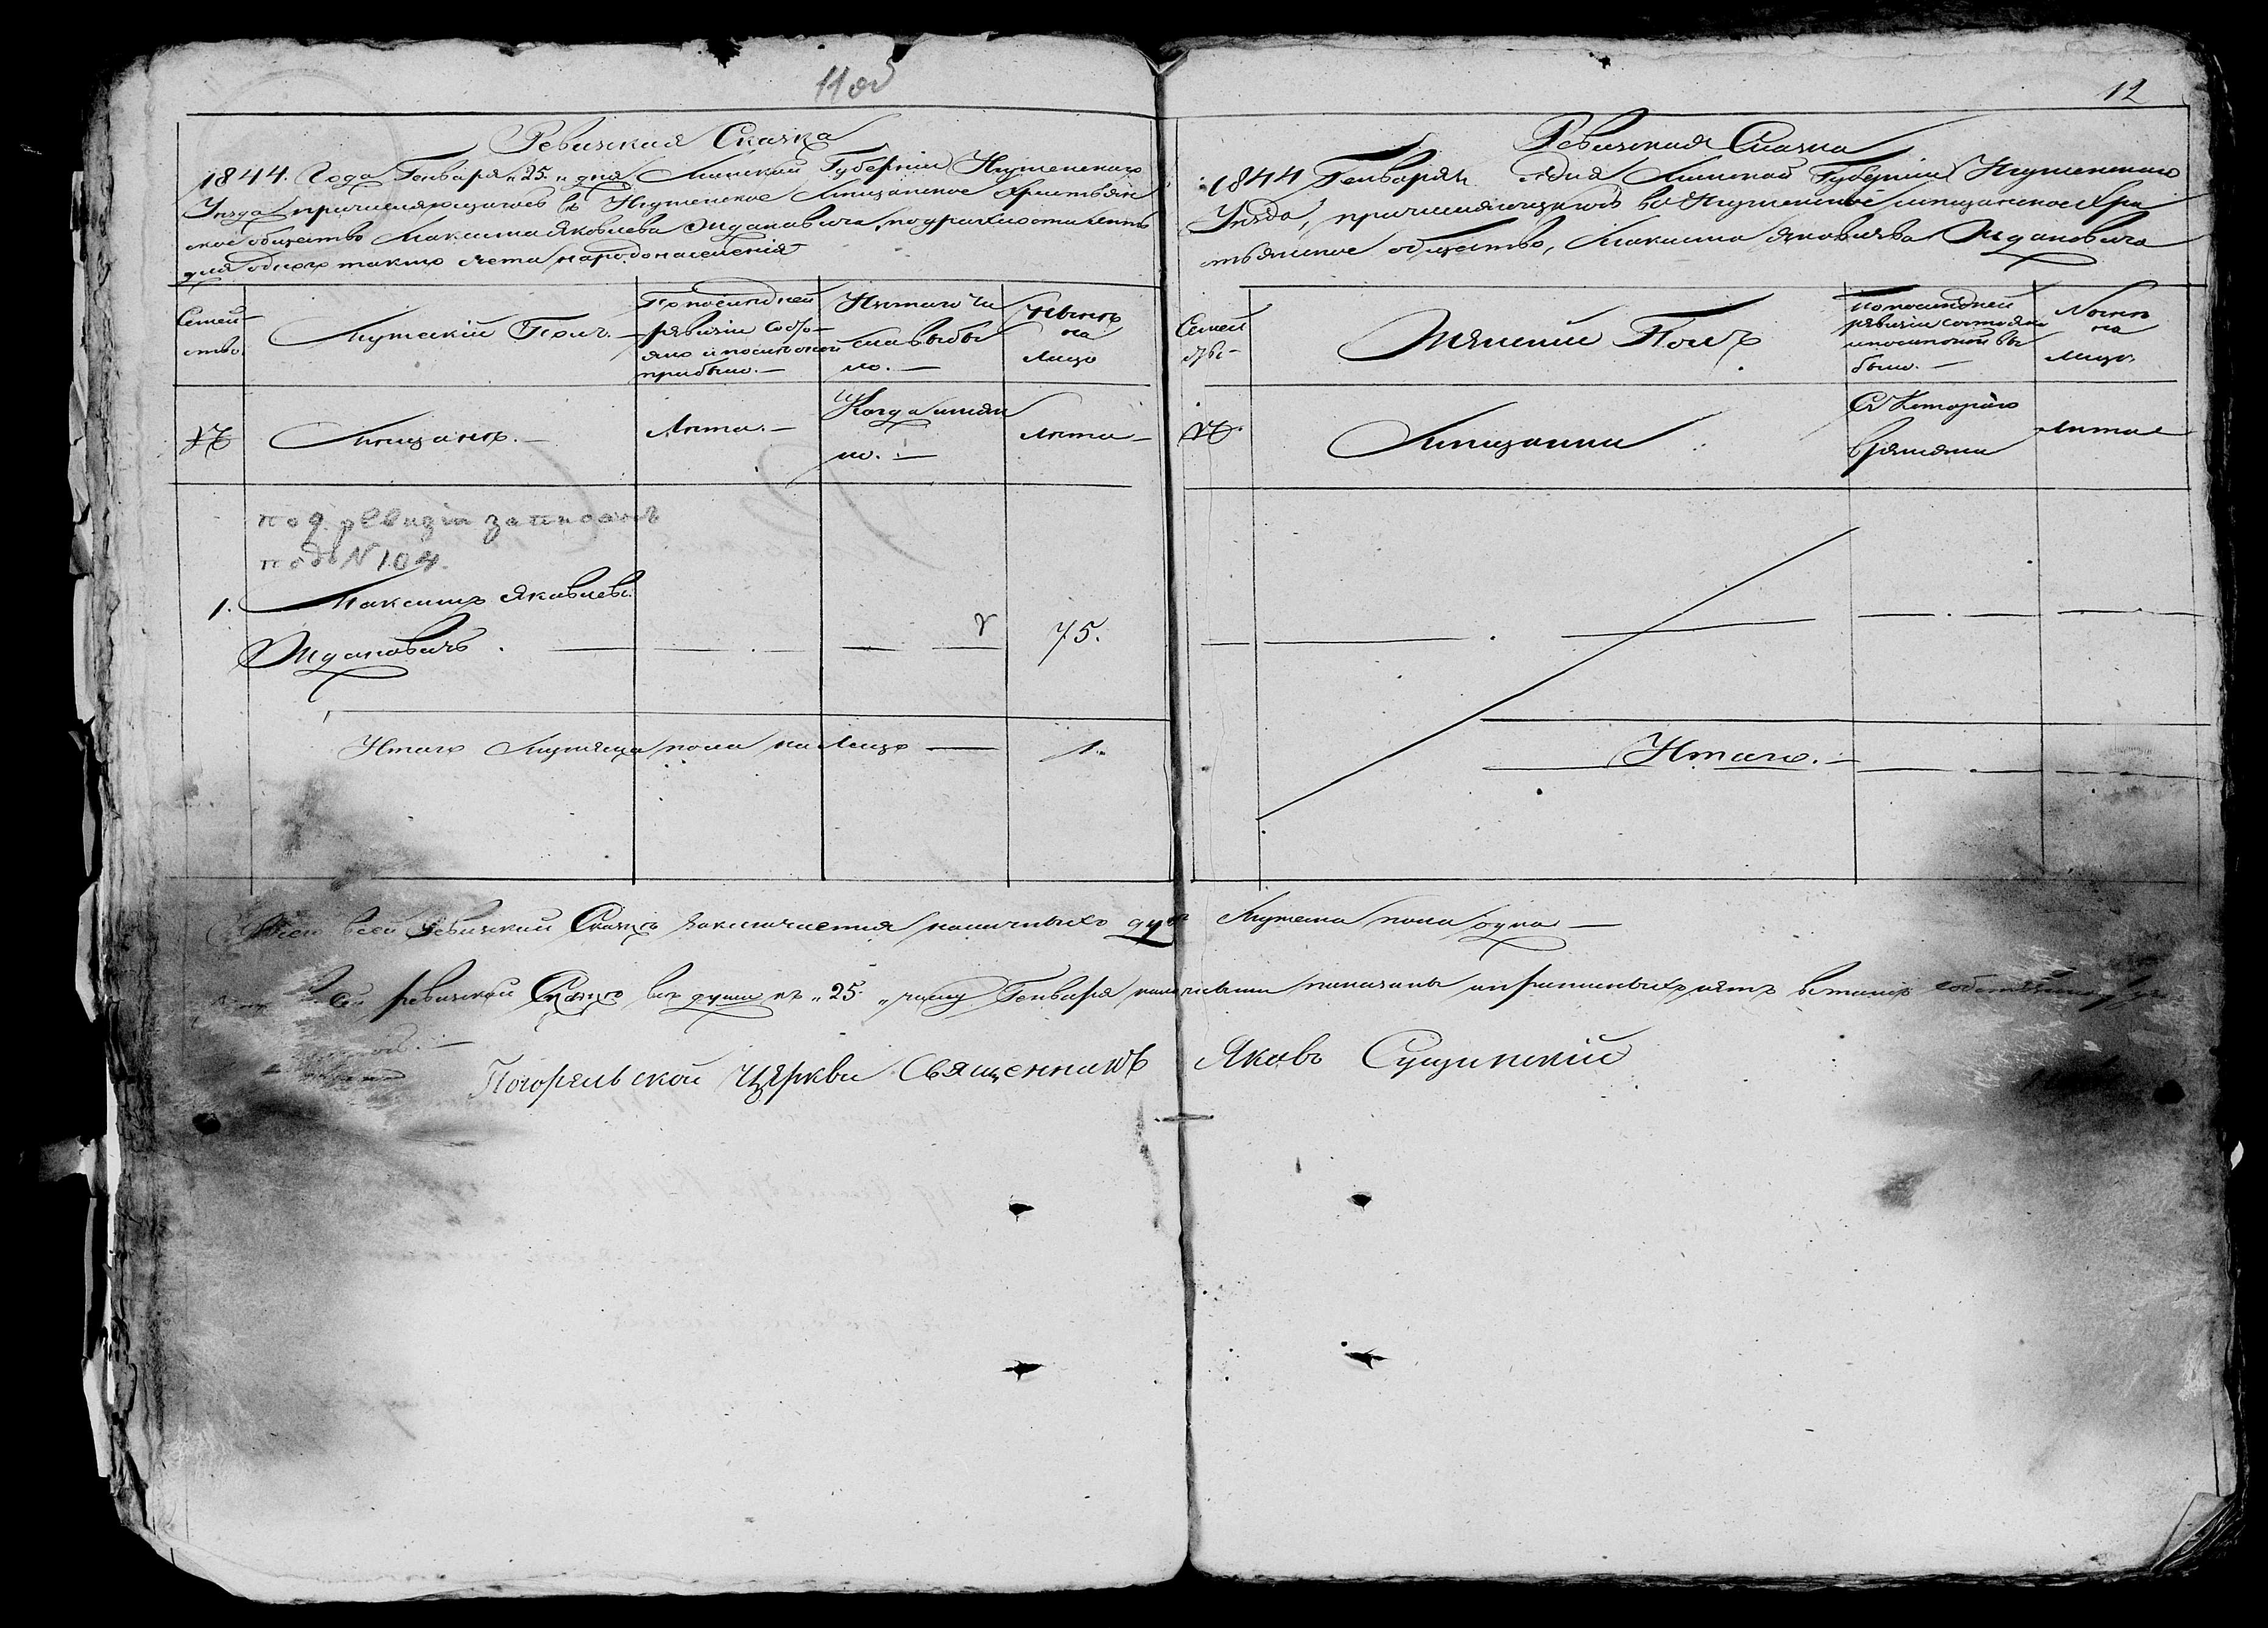 11 об
Ревизская Сказка
1844. Года Генваря „25„ дня Минской Губернии Игуменскаго
Уезда причисляющагося въ Игуменское Мещанское Христиан
ское общество Максима Яковлева Ждановича, по
для одного только счета народонаселенія
Семей-
ство.
Мужескій Полъ. —
По последней
ревизіи состо-
яло и после оной
прибыло. —
Изъ того чи
сла выбы
ло. —
Ныне
на
лицо
№
Мещанъ. —
Лета. —
Когда имян
но. —
Лета —
по 9. ревизіи записанъ
подъ N 104.
1. Максимъ Яковлевъ
Ждановичъ. — 75.
Итого Мужеска пола на Лицо — 1.
12
Ревизская Сказка
1844 Генваря дня Минской Губерніи Игуменскаго
Уезда, причисляющагося въ Игуменское мещанское Хри
стьянское общество, Максима Яковлева Ждановича
Семей
ство —
Женскій Полъ
По последней
ревизіи состояло
и после оной вы
было. —
Ныне
на
лицо.
№.
Мещанки
Съ Котораго
времени
Лета
Итого. —
Всего въ сей Ревизской Сказке заключается наличныхъ душъ Мужеска пола одна —
сей ревизской Сказке все души къ „25„ числу Генваря наличными показаны и пропи­сныхъ нетъ въ томъ
Погорельской Церкви Священникъ Яковъ Сущинскій